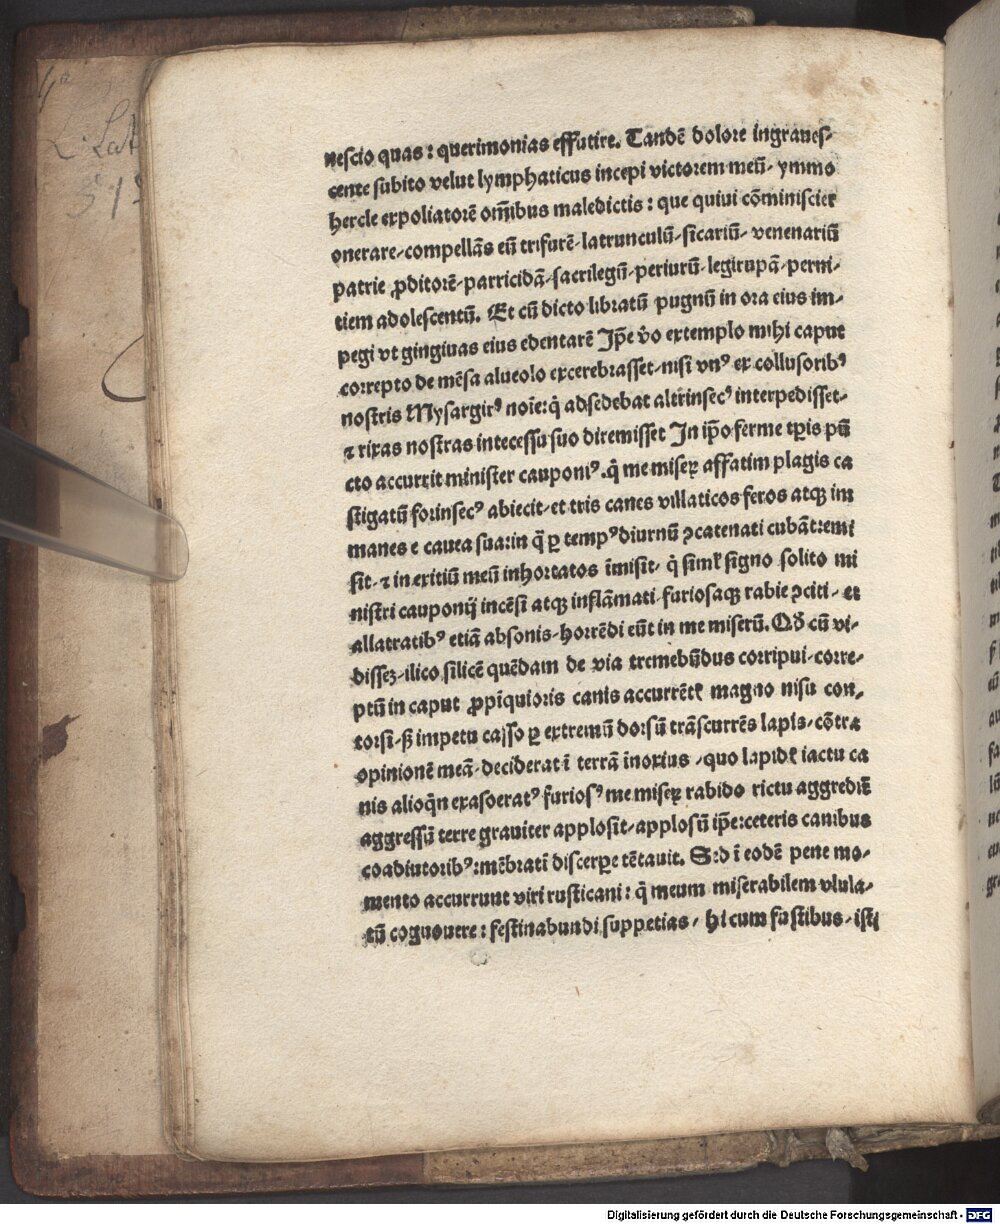 nescio quas: querimonias effutire. Tandē dolore ingraues-
cente subito velut lymphaticus incepi victorem meū- ymmo
hercle expoliatorē om̄ibus maledictis: que quiui cōminiscier
onerare-compellās eū trifurē-latrunculū-sicariū- venenariū
patrie ꝓditorē-parricidā-sacrilegū-periurū-legirupā-perni-
tiem adolescentū. Et cū dicto libratū pugnū in ora eius im-
pegi vt gingiuas eius edentarē Ip̄e v̊o extemplo mihi caput
correpto de mēsa alueolo excerebrasset-nisi vnꝰ ex collusoribꝰ
nostris Mysargirꝰ noīe:q̄ adsedebat altrinsecꝰ interpedisset-
⁊ rixas nostras intecessu suo diremisset In ip̄o ferme tp̄is pū
cto accurrit minister cauponiꝰ.q̄ me miseꝝ affatim plagis ca
stigatū forinsecꝰ abiecit-et tris canes villaticos feros atqꝫ im
manes e cauea sua:in q̄ ꝑ tempꝰ diurnū ↄcatenati cubāt:emi
sit-⁊ in exitiū meū inhortatos īmisit- q̄ siml' signo solito mi
nistri cauponij incēsi atqꝫ inflāmati-furiosaqꝫ rabie ↄciti- et
allatratibꝰ etiā absonis-horrēdi eūt in me miserū. Qd̓ cū vi-
disseꝫ-ilico silicē quēdam de via tremebūdus corripui-corre-
ptū in caput ꝓpīquioris canis accurrētꝭ magno nisu con-
torsi-sꝫ impetu casso ꝑ extremū dorsū trāscurrēs lapis-cōtra
opinionē meā-deciderat ī terrā inoxius -quo lapidꝭ iactu ca
nis alioq̄n exasperatꝰ furiosꝰ me miseꝝ rabido rictu aggredit̄
aggressū terre grauiter applosit-applosū ip̄e:ceteris canibus
coadiutoribꝰ:mēbratī discerꝑe tētauit. Sed ī eodē pene mo-
mento accurrunt viri rusticani: q̄ meum miserabilem vlula-
tū cognouere: festinabundi suppetias- hi cum fustibus- isti
4°
L. Lat
Digitalisierung gefördert durch die Deutsche Forschungsgemeinschaft - DFG